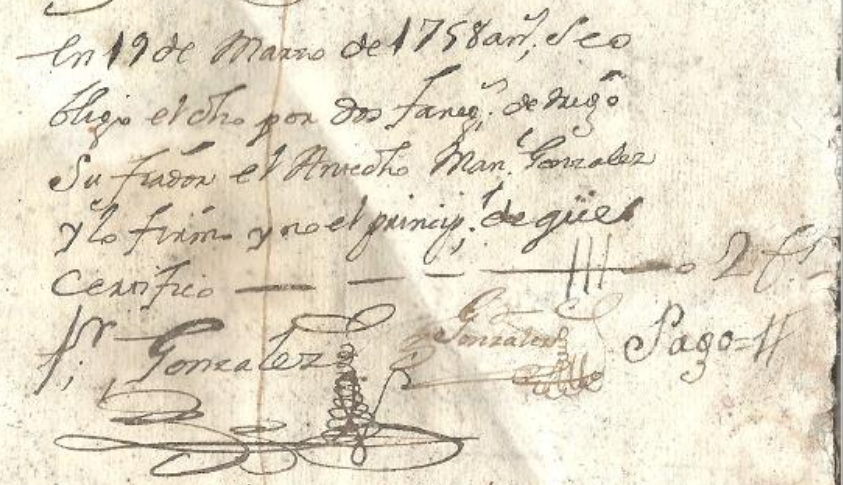 En 19 de Marzo de 1758 an.s Se o
bligo el dho por dos faneg.s de trigo
Su fiador el Antedho Man.l Gonzalez
y lo firmo y no el princip.l de que
Certifico — — — — 2 fs
Gonzalez Gonzalez Pago =